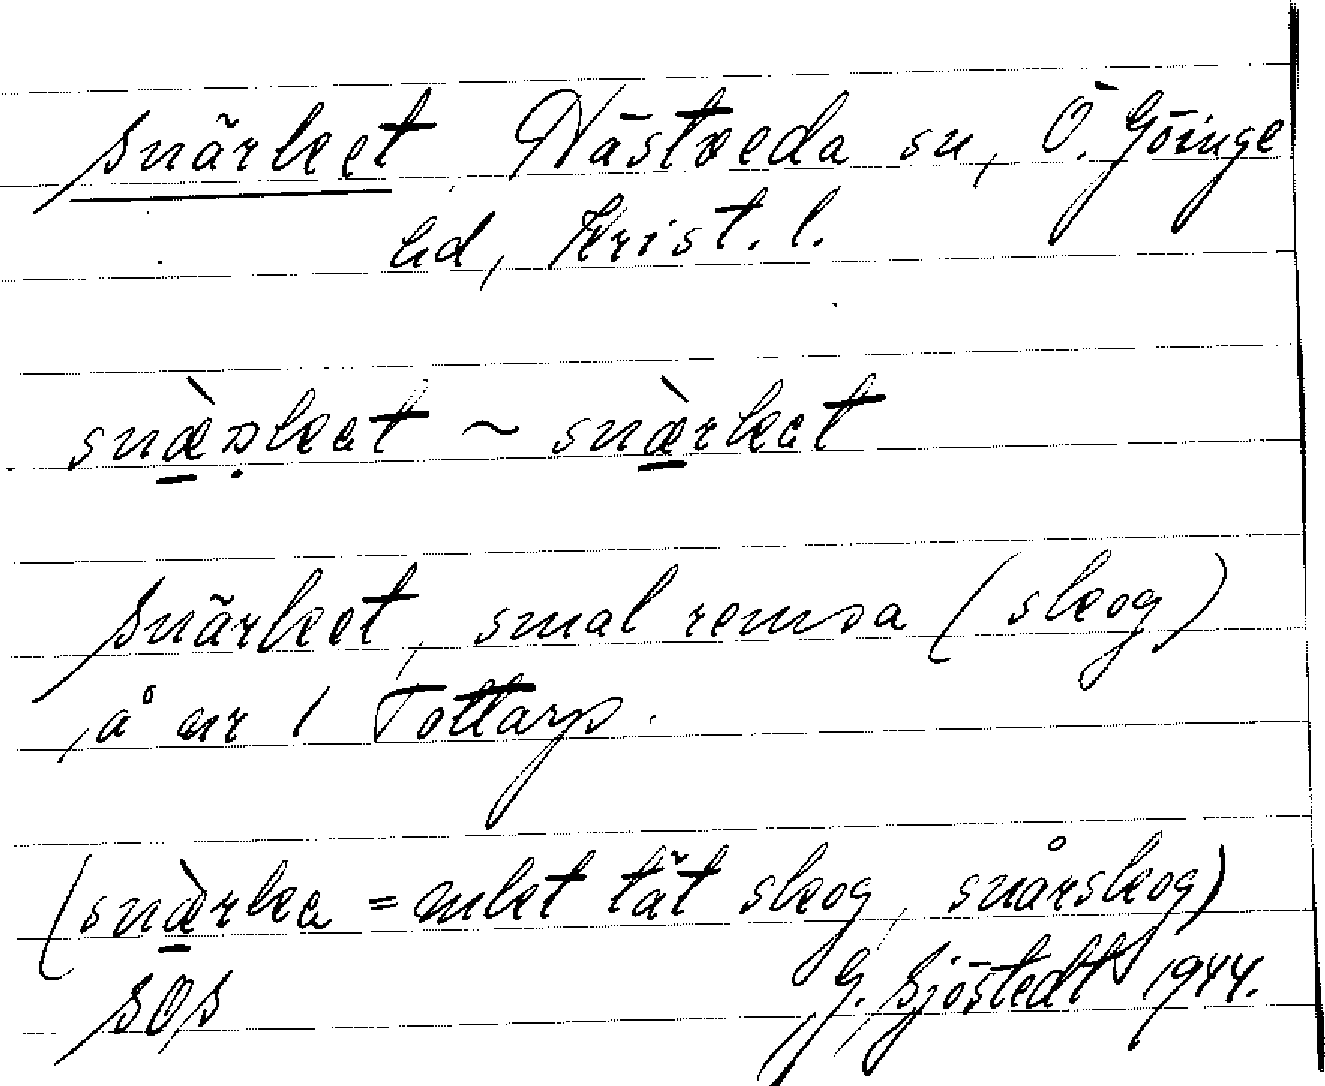 Snärket Nästveda sn, Ö. Göinge
hd, Krist. l.
snæ̀ʀkat ~ snæ̀rkat
Snärket, smal remsa (skog)
å nr 1 Tottarp.
(snæ̀rka = mket tät skog, snårskog)
SOS G. Sjöstedt 1944.